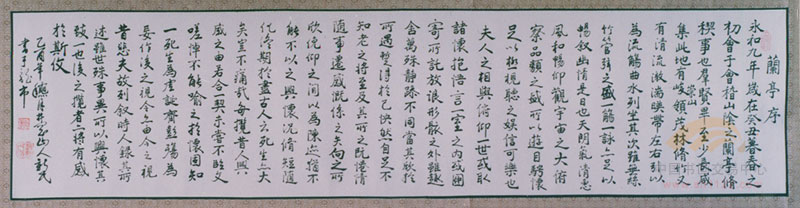 蘭亭序
永和九年歲在癸丑暮春之
初會于會稽山陰之蘭亭脩
稧事也群賢畢至少長咸
集此地有崇山峻領茂林脩竹又
有清流激湍暎帶左右引以
為流觴曲水列坐其次雖無絲
竹管弦之盛一觴一詠亦足以
暢叙幽情是日也天朗氣清惠
風和暢仰觀宇宙之大俯
察品類之盛所以遊目騁懷
足以極視聽之娛信可樂也
夫人之相與俯仰一世或取
諸懷抱悟言一室之内或因
寄所託放浪形骸之外雖趣
舍萬殊靜躁不同當其欣於
所遇暫得於己快然自足不
知老之將至及其所之既惓情
隨事遷感慨係之矣向之所
欣俛仰之間以為陳迹猶不
能不以之興懷況脩短隨
化終期於盡古人云死生亦大
矣豈不痛哉每攬昔人興
感之由若合一契未嘗不臨文
嗟悼不能喻之於懷固知
一死生為虛誕齊彭殤為
妄作後之視今亦由今之視
昔悲夫故列叙時人錄其所
述雖世殊事異所以興懷其
致一也後之攬者亦將有感
於斯文
乙酉年